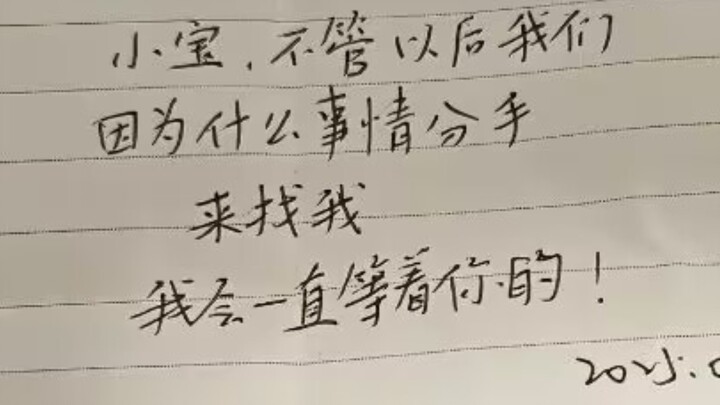 小宝，不管以后我们
因为什么事情分手
来找我
我会一直等着你的！
2025.